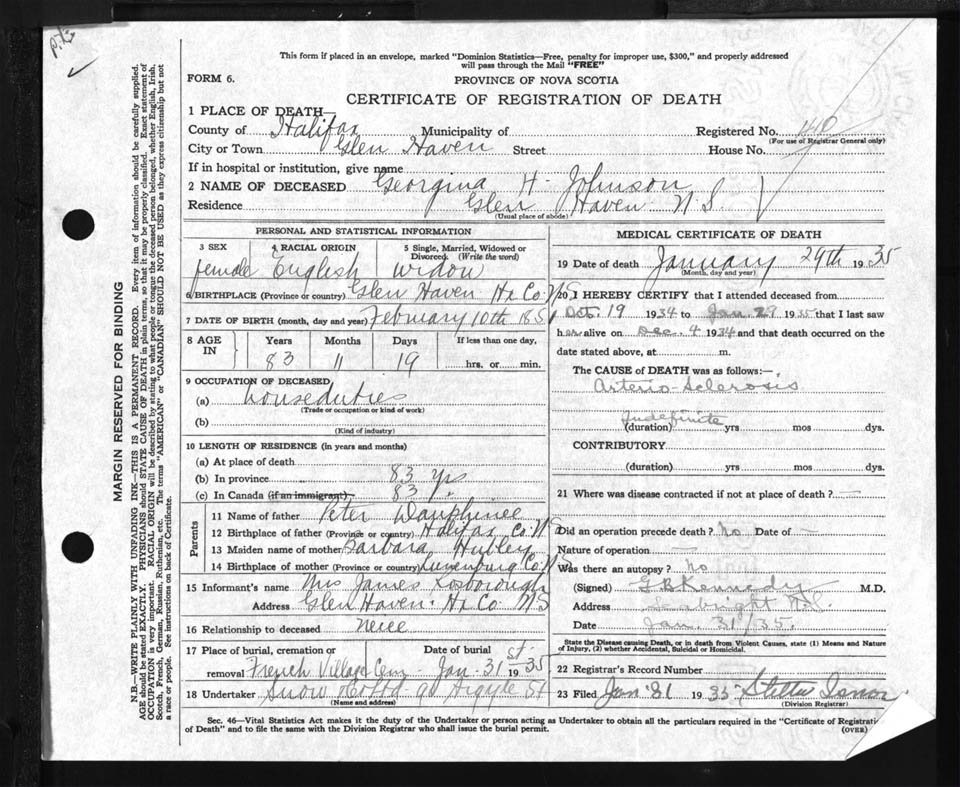 This form if placed in an envelope, marked "Dominion Statistics—Free, penalty for improper use, $300," and properly addressed
will pass through the Mail "FREE"
FORM 6.
PROVINCE OF NOVA SCOTIA
CERTIFICATE OF REGISTRATION OF DEATH
1 PLACE OF DEATH—
County of Halifax Municipality of Registered No. 140
(For use of Registrar General only)
City or Town Glen Haven Street House No.
If in hospital or institution, give name
2 NAME OF DECEASED Georgina H. Johnson
Residence Glen Haven N.S.
(Usual place of abode)
PERSONAL AND STATISTICAL INFORMATION
3 SEX 4 RACIAL ORIGIN 5 Single, Married, Widowed or
Divorced. (Write the word)
female English widow
6 BIRTHPLACE (Province or country) Glen Haven Hx Co. N.S.
7 DATE OF BIRTH (month, day and year) February 10th 1851
8 AGE IN Years Months Days If less than one day,
83 11 19 hrs. or min.
9 OCCUPATION OF DECEASED
(a) houseduties
(Trade or occupation or kind of work)
(b)
(Kind of industry)
10 LENGTH OF RESIDENCE (in years and months)
(a) At place of death
(b) In province 83 yrs
(c) In Canada (if an immigrant) 83 "
Parents
11 Name of father Peter Dauphinee
12 Birthplace of father (Province or country) Halifax Co. N.S.
13 Maiden name of mother Barbara Hubley
14 Birthplace of mother (Province or country) Lunenburg Co. N.S.
15 Informant's name Mrs James
Address Glen Haven Hx Co N.S
16 Relationship to deceased neice
17 Place of burial, cremation or Date of burial
removal French Village Cem. Jan. 31st 1935
18 Undertaker Snow 90 Argyle St
(Name and address)
MEDICAL CERTIFICATE OF DEATH
19 Date of death January 29th 1935
(Month, day and year)
20 I HEREBY CERTIFY that I attended deceased from
Oct. 19 1934 to Jan. 29 1935 that I last saw
her alive on Dec. 4 1934 and that death occurred on the
date stated above, at m.
The CAUSE of DEATH was as follows:—
Arterio-Sclerosis
Indefinite
(duration) yrs mos dys.
CONTRIBUTORY
(duration) yrs mos dys.
21 Where was disease contracted if not at place of death? —
Did an operation precede death? No Date of —
Nature of operation —
Was there an autopsy? No
(Signed) G B Kennedy M.D.
Address N.S.
Date Jan. 31/35.
State the Disease causing Death, or in death from Violent Causes, state (1) Means and Nature
of Injury, (2) whether Accidental, Suicidal or Homicidal.
22 Registrar's Record Number
23 Filed Jan 31 1935
(Division Registrar)
Sec. 46—Vital Statistics Act makes it the duty of the Undertaker or person acting as Undertaker to obtain all the particulars required in the "Certificate of Registration
of Death" and to file the same with the Division Registrar who shall issue the burial permit.
(OVER)
MARGIN RESERVED FOR BINDING
N.B.—WRITE PLAINLY WITH UNFADING INK—THIS IS A PERMANENT RECORD. Every item of information should be carefully supplied.
AGE should be stated EXACTLY. PHYSICIANS should STATE CAUSE OF DEATH in plain terms, so that it may be properly classified. Exact statement of
OCCUPATION is very important. RACIAL ORIGIN will be described by stating to what people or tongue the deceased person belonged, whether English, Irish,
Scotch, French, German, Russian, Ruthenian, etc. The terms "AMERICAN" or "CANADIAN" SHOULD NOT BE USED as they express citizenship but not
a race or people. See instructions on back of Certificate.